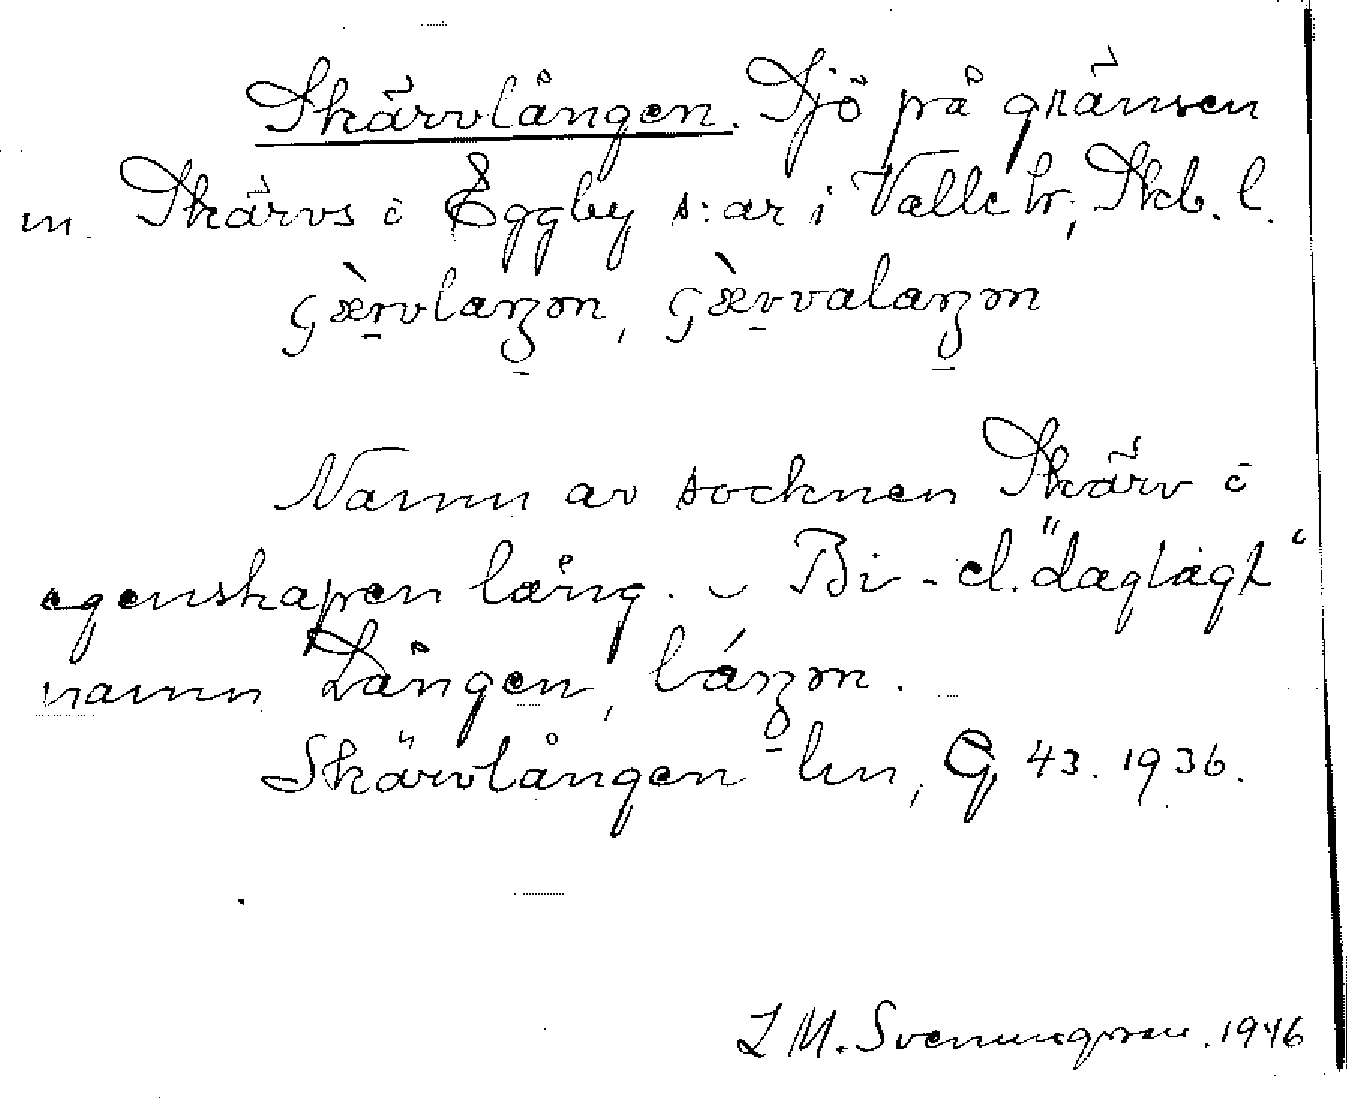 Skärvlången. Sjö på gränsen
m. Skärvs o Eggby s:ar i Valle hr, Skb. l.
Namn av socknen Skärv o
egenskapen lång. – Bi- el. "dagligt"
namn Lången,
Skärvlången hm, G, 43. 1936.
L M. Svenungsson. 1946